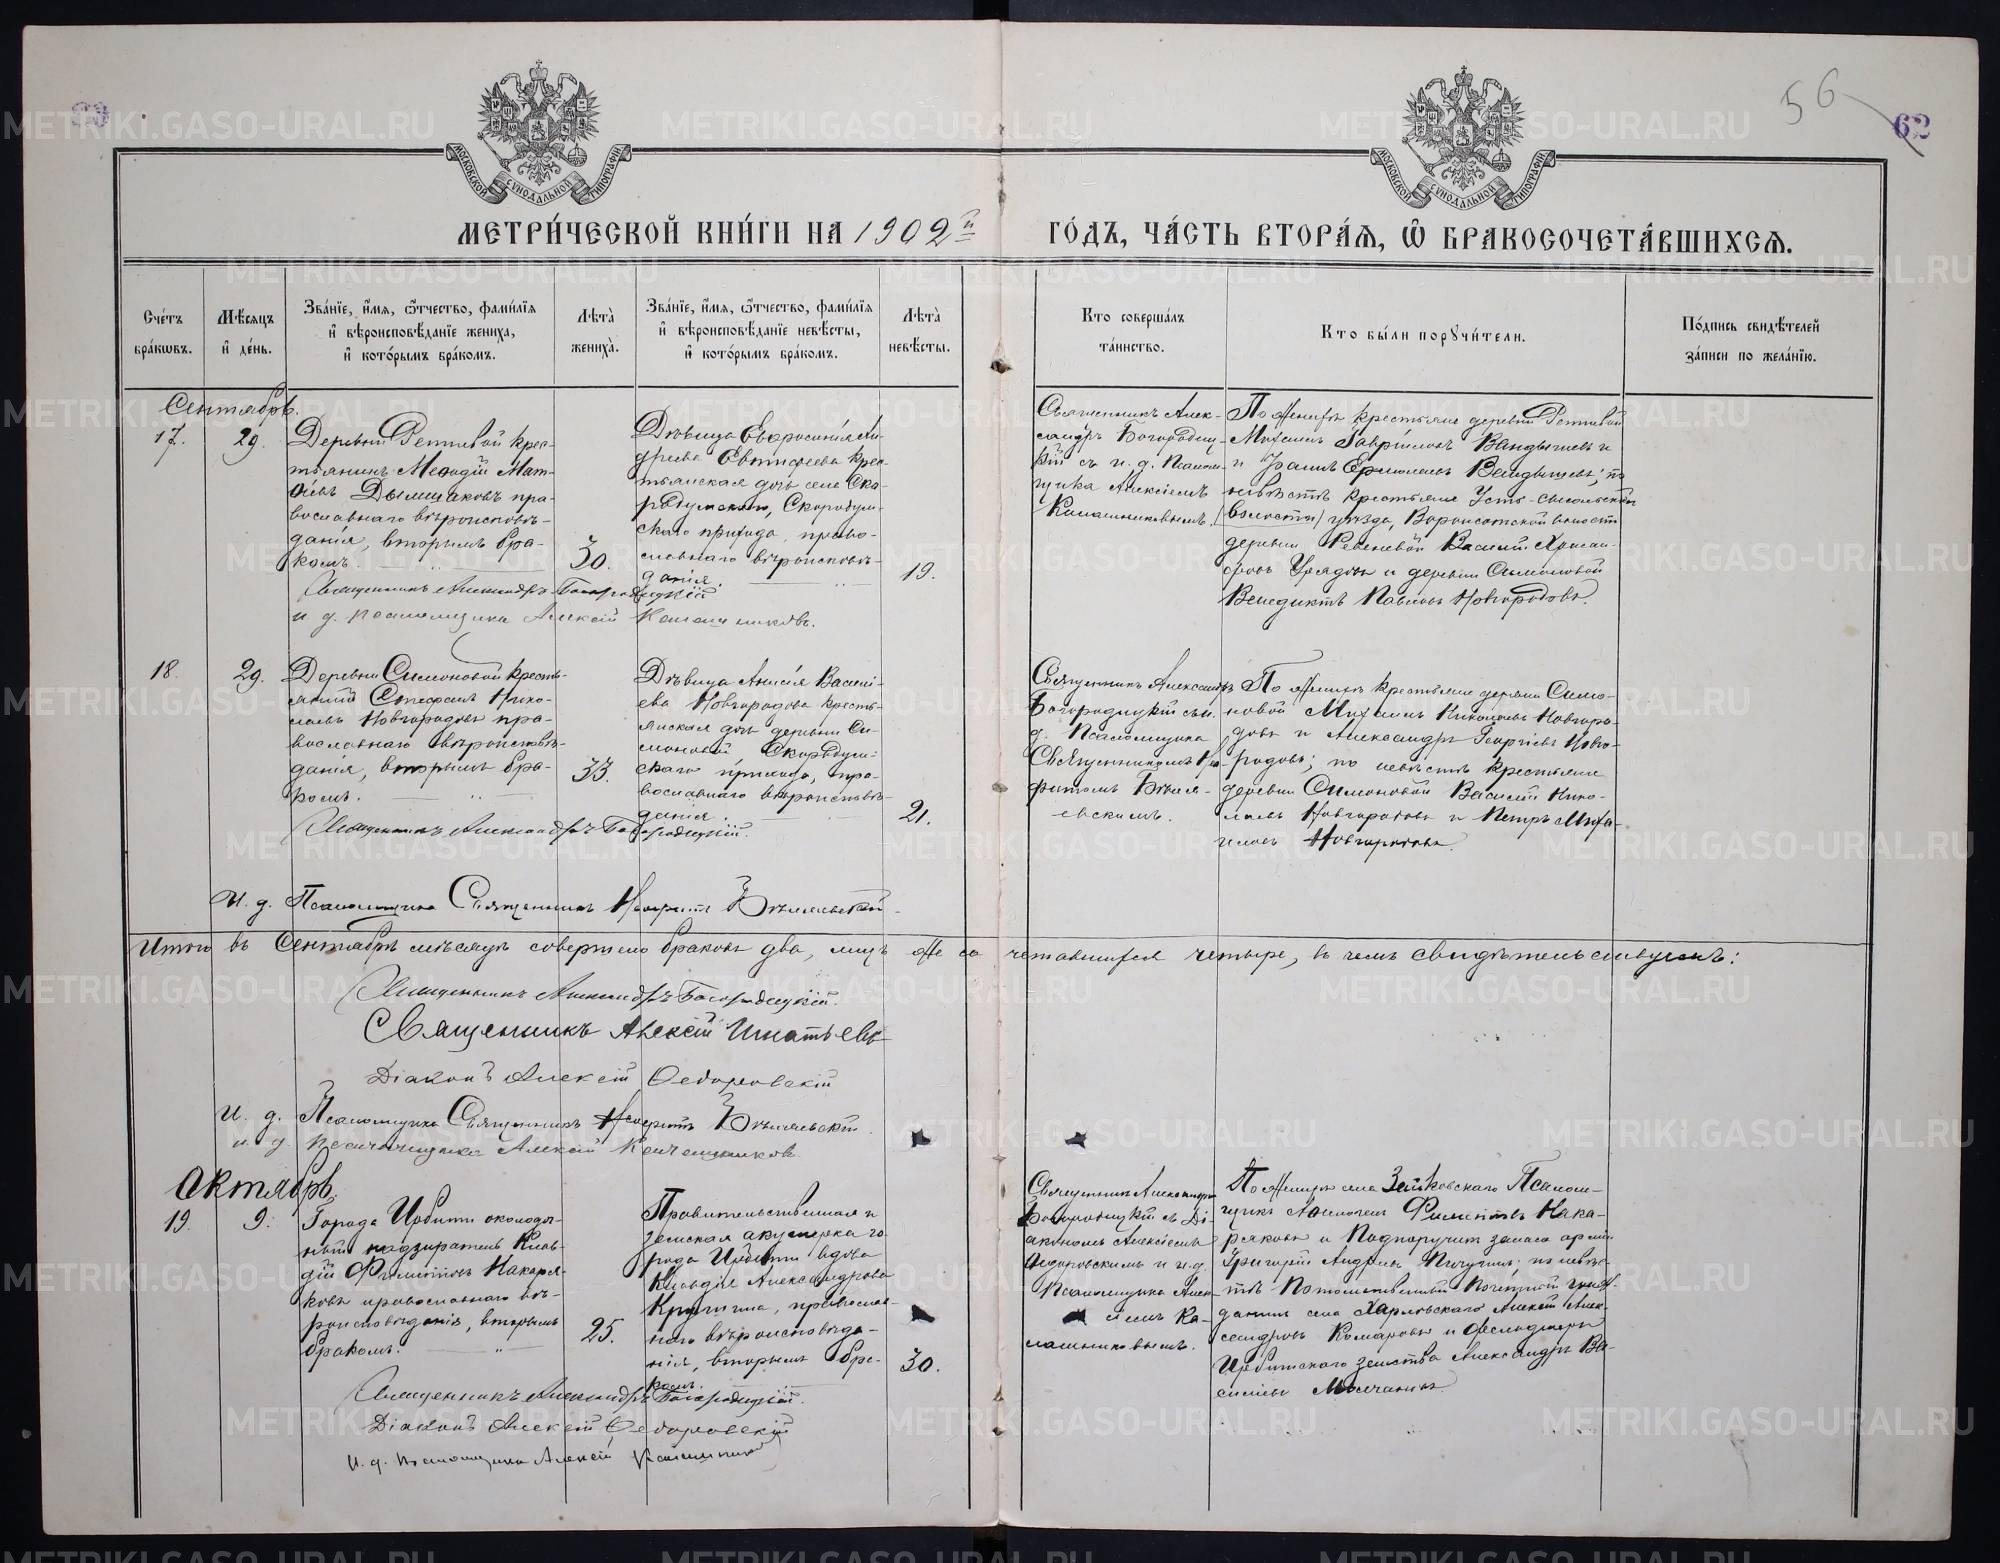 56
62
МОСКОВСКОЙ СѴНОДАЛЬНОЙ ТИПОГРАФІИ
МОСКОВСКОЙ СѴНОДАЛЬНОЙ ТИПОГРАФІИ
МЕТРИ́ЧЕСКОЙ КНИ́ГИ НА 1902й
ГО́ДЪ, ЧА́СТЬ ВТОРА́Я, Ѡ БРАКОСОЧЕТА́ВШИХСЯ.
Сче́тъ бра́кѡвъ.
Мѣ́сяцъ и де́нь.
Зва́нїе, и́мя, ѻ́тчество, фами́лїя и вѣроисповѣ́данїе жениха̀, и кото́рымъ бра́комъ.
Лѣта̀ жениха̀.
Зва́нїе, и́мя, ѻ́тчество, фами́лїя и вѣроисповѣ́данїе невѣ́сты, и кото́рымъ бра́комъ.
Лѣта̀ невѣ́сты.
Кто соверша́лъ та́инство.
Кто бы́ли порꙋчи́тели.
По́дпись свидѣ́телей за́писи по жела́нїю.
Сентябрь.
17.
29.
Деревни Ретневой крес-
тьянинъ Меѳодій Мат-
ѳіевъ Дымшаковъ пра-
вославнаго вѣроисповѣ-
данія, вторымъ бра-
комъ.
30.
Дѣвица Евфросинія Ан-
дреева Евтифеева крес-
тьянская дочь села Ско-
родумскаго, Скородум-
скаго прихода, право-
славнаго вѣроисповѣ-
данія.
19.
Священникъ Алек-
сандръ Богородиц-
кій съ и. д. Псалом-
щика Алексіемъ
Калашниковымъ.
По женихѣ крестьяне деревни Ретневой
Михаилъ Гавриловъ
и Ермолаевъ по
невѣстѣ крестьяне Усть-
уѣзда, волости
деревни Василій
и деревни Симоновой
Венедиктъ Павловъ Новгородовъ.
Священникъ Александръ Богородицкій
и д. псаломщика Алексій Калашниковъ.
18.
29.
Деревни Симоновой кресть-
янинъ Стефанъ Нико-
лаевъ Новгородовъ пра-
вославнаго вѣроисповѣ-
данія, вторымъ бра-
комъ.
33.
Дѣвица Анисія Василі-
ева Новгородова кресть-
янская дочь деревни Си-
моновой Скородум-
скаго прихода, пра-
вославнаго вѣроисповѣ-
данія.
21.
Священникъ Александръ
Богородицкій съ и.
д. Псаломщика
Священникомъ
По женихѣ крестьяне деревни Симо-
новой Михаилъ Николаевъ Новгоро-
довъ и Александръ Георгіевъ Новго-
родовъ; по невѣстѣ крестьяне
деревни Симоновой Василій Нико-
лаевъ Новгородовъ и Петръ Миха-
иловъ Новгородовъ.
Священникъ Александръ Богородицкій.
И. д. Псаломщика Священникъ
Итого въ Сентябрѣ мѣсяцѣ совершено браковъ два, лицъ же сочетавшихся четыре, въ чемъ свидѣтельствуемъ:
Священникъ Александръ Богородицкій.
Священникъ Алексій Игнатьевъ
Діаконъ Алексій Ѳедоровскій
И. д. Псаломщика Священникъ
и. д. псаломщика Алексій Калашниковъ
Октябрь.
19.
9.
Города Ирбити околодоч-
ный надзиратель Клав-
дій Филитовъ Накаря-
ковъ православнаго вѣ-
роисповѣданія, вторымъ
бракомъ.
25.
Правительственная и
земская акушерка го-
рода Ирбити вдова
Клавдія Александрова
православ-
наго вѣроисповѣда-
нія, вторымъ бра-
комъ.
30.
Священникъ Александръ
Богородицкій съ Ді-
акономъ Алексіемъ
Ѳедоровскимъ и и. д.
Псаломщика Алек-
сіемъ Ка-
лашниковымъ.
По женихѣ села Зайковскаго Псалом-
щикъ Нака-
ряковъ и Подпоручикъ запаса арміи
Григорій Андреевъ по невѣс-
тѣ Потомственный Почетный граж-
данинъ села Харловскаго Алексій Алек-
сандровъ Комаровъ и фельдшеръ
Ирбитскаго земства Александръ Ва-
сильевъ Молчановъ.
Священникъ Александръ Богородицкій.
Діаконъ Алексій Ѳедоровскій
И. д. псаломщика Алексій Калашниковъ
METRIKI.GASO-URAL.RU